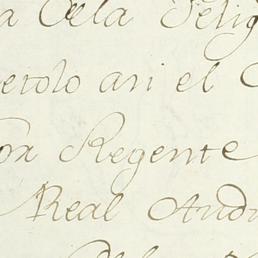 a Cela Felig
etolo asi el
on Regente
Real Audi